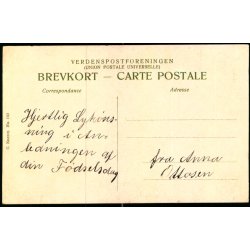 VERDENSPOSTFORENINGEN
(UNION POSTALE UNIVERSELLE)
BREVKORT – CARTE POSTALE
Correspondance
Adresse
Hjertlig Lykønsk-
ning i An-
ledningen af
din Fødselsdag
fra Anna
Ottosen